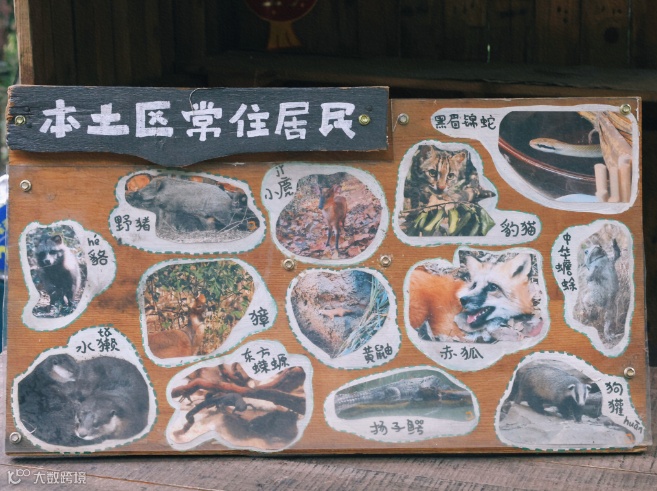 本土区常住居民
黑眉锦蛇
野猪
jǐ
小麂
豹猫
hé
貉
獐
黄鼬
赤狐
中华蟾蜍
tǎ
水獭
东方
蝾螈
扬子鳄
狗
獾 huān
大数跨境